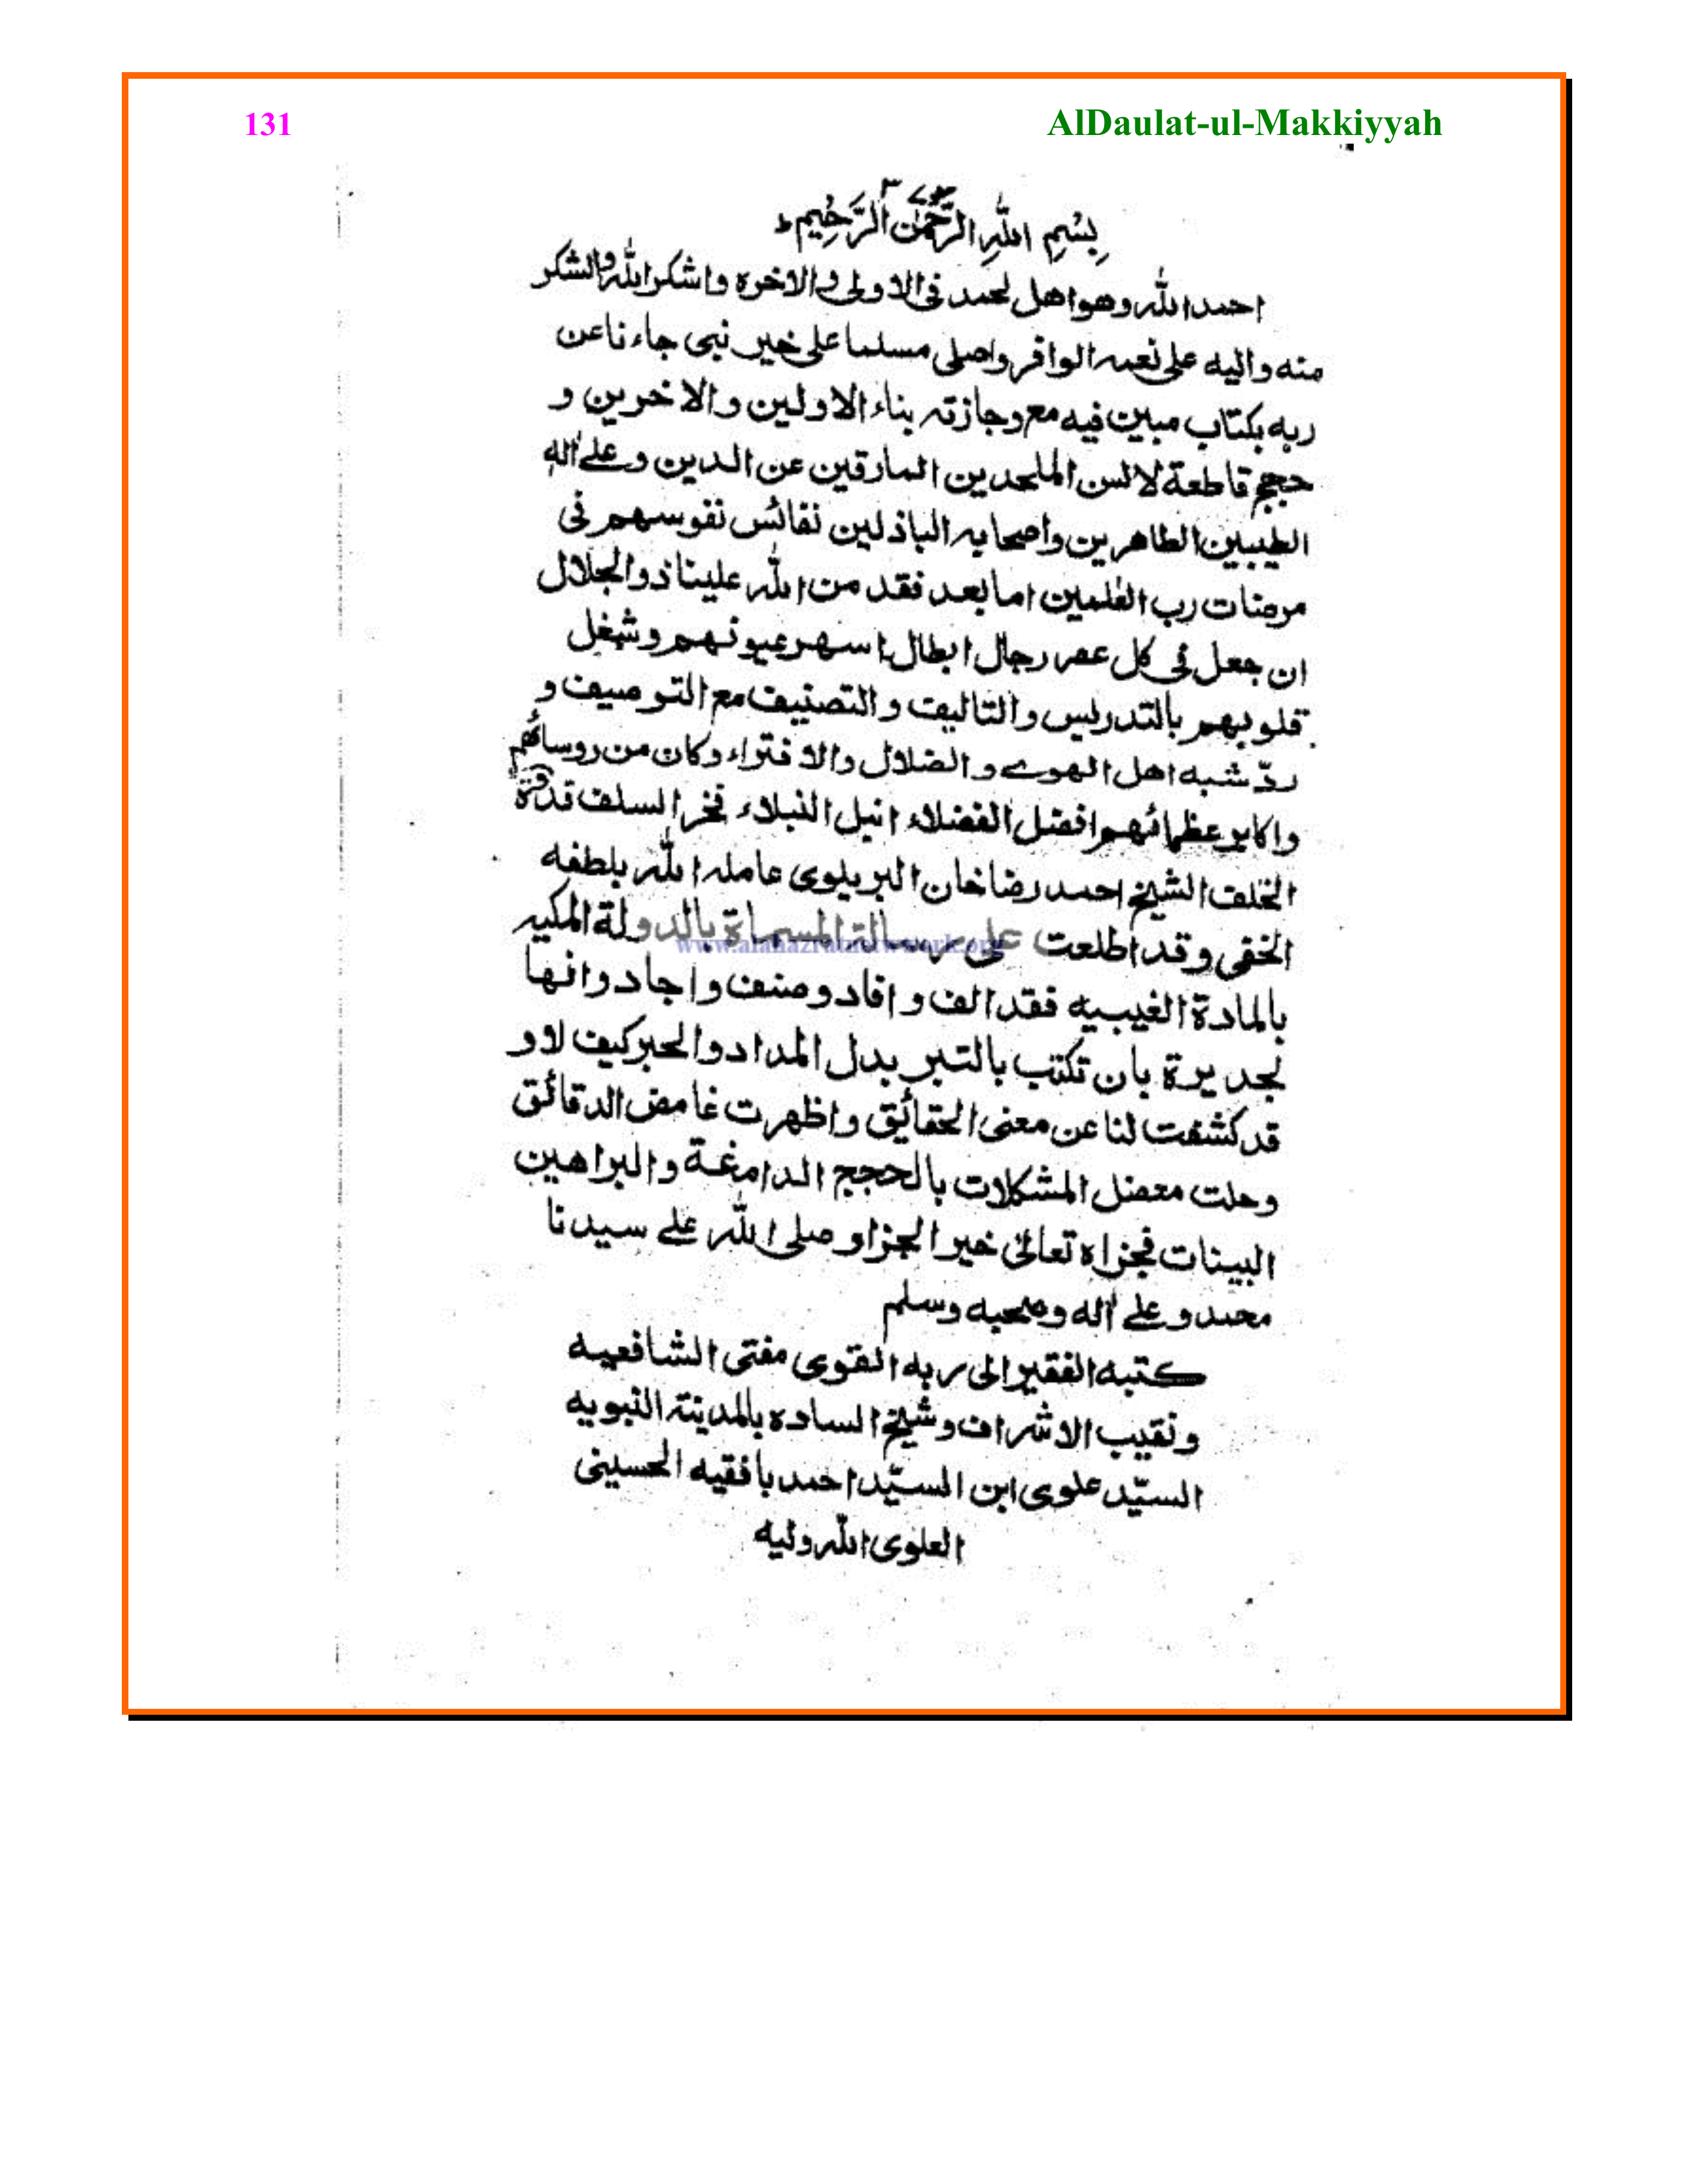 131 AlDaulat-ul-Makkiyyah
بِسْمِ اللّٰهِ الرَّحْمٰنِ الرَّحِيْمِ ط
احمد اللّٰه وهو اهل لحمد فى الاولى و الاخره واشكر اللّٰه والشكر
منه واليه على نعمه الوافر واصلى مسلما على خير نبى جاءنا عن
ربه بكتاب مبين فيه مع وجازته بناء الاولين والاخرين و
حجج قاطعة لالسن الملحدين المارقين عن الدين وعلے اٰله
الطيبين الطاهرين واصحابه الباذلين نفائس نفوسهم فى
مرضات رب العٰلمين اما بعد فقد من اللّٰه علينا ذوالجلال
ان جعل فى كل عصر رجال ابطال اسهر عيونهم وشغل
قلوبهم بالتدريس والتاليف والتصنيف مع التوصيف و
ردّ شبه اهل الهوے و الضلال والافتراء وكان من روسائهم
واكابر عظمائهم افضل الفضلاء انبل النبلاء فخر السلف قدوة
الخلف الشيخ احمد رضا خان البريلوى عامله اللّٰه بلطفه
الخفى وقد اطلعت على رسالة المسماة بالدولة المكيه
www.alahazratnetwork.org
بالمادة الغيبيه فقد الف و افاد وصنف واجاد وانها
لجديرة بان تكتب بالتبر بدل المداد والحبر كيف لا و
قد كشفت لنا عن معنى الحقائق واظهرت غامض الدقائق
وحلت معضل المشكلات بالحجج الدامغة والبراهين
البينات فجزاه تعالىٰ خير الجزا و صلى اللّٰه علے سيدنا
محمد و علے اٰله وصحبه وسلم
كتبه الفقير الى ربه القوى مفتى الشافعيه
ونقيب الاشراف وشيخ الساده بالمدينة النبويه
السيّد علوى ابن السيّد احمد بافقيه الحسينى
العلوى اللّٰه وليه